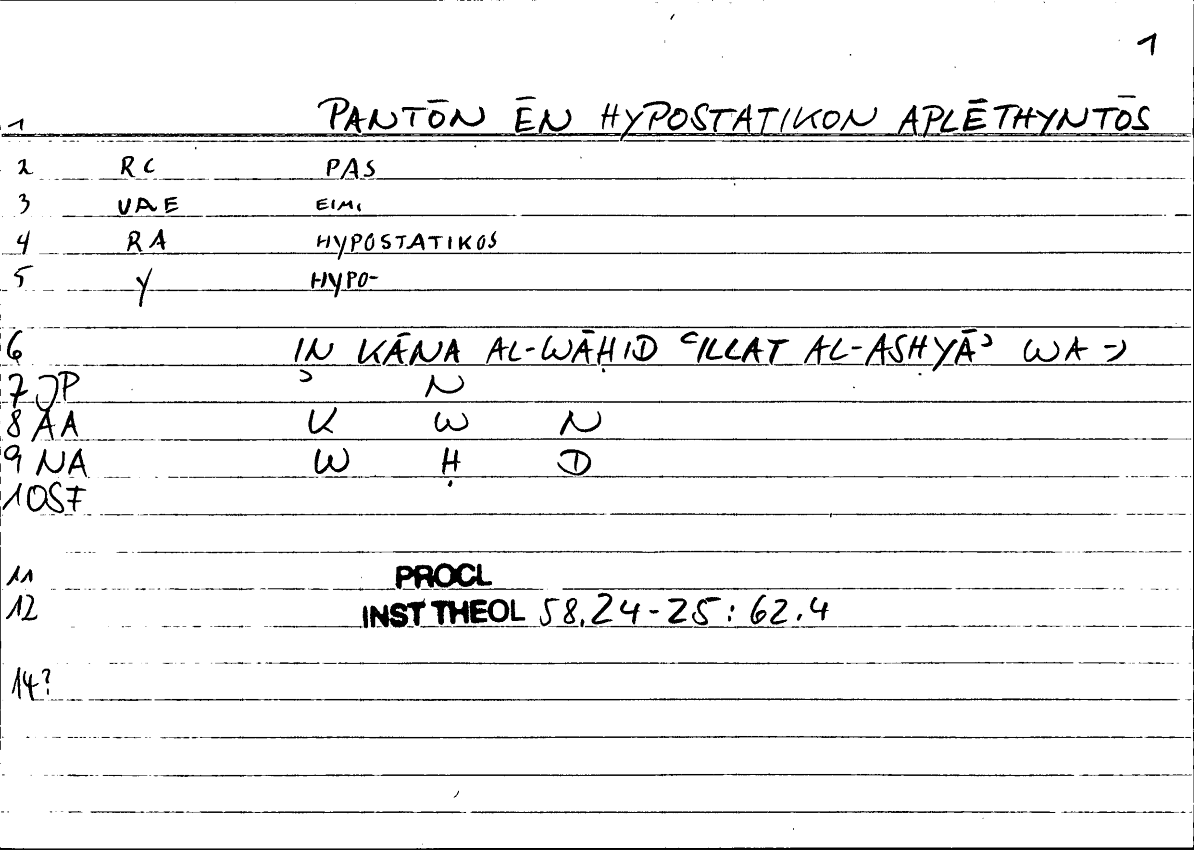 1
1 PANTŌN ĒN HYPOSTATIKON APLĒTHYNTŌS
2 RC PAS
3 VAE EIMI
4 RA HYPOSTATIKOS
5 Y HYPO-
6 IN KĀNA AL-WĀḤID ʿILLAT AL-ASHYĀʾ WA →
7 JP ʾ N
8 AA K W N
9 NA W Ḥ D
10 SF
11 PROCL
12 INST THEOL 58.24-25: 62.4
14?